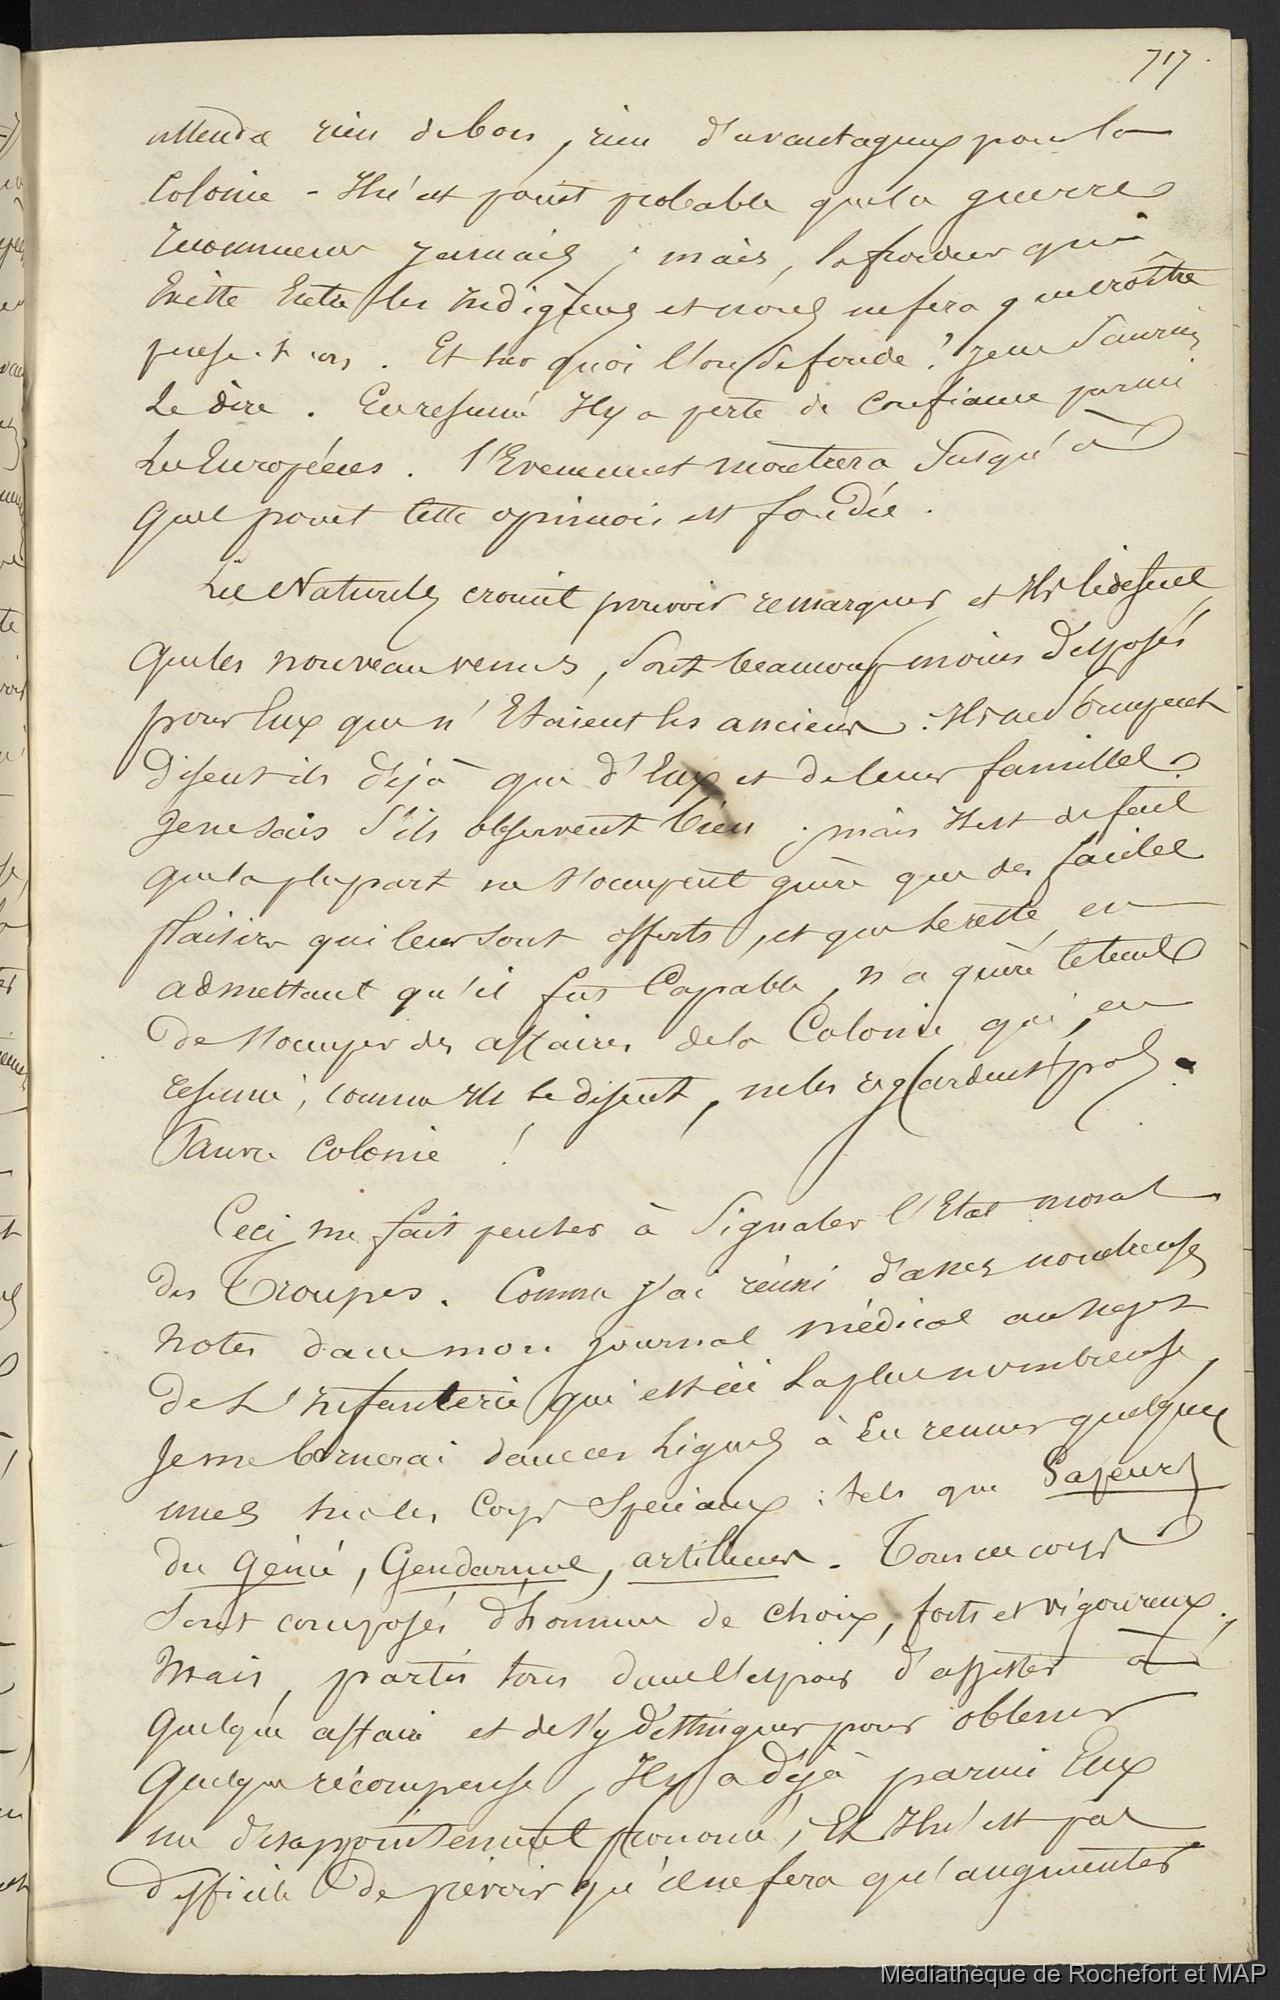 717.
attendre rien de bon, rien d'avantageux pour la
Colonie - Il n'est point probable que la guerre
recommence jamais ; mais, la froideur qui
Existe Entre les Indigènes et nous ne fera que croître
pense-t-on. Et sur quoi l'on se fonde ? je ne saurais
Le dire. En resumé Il y a perte de Confiance parmi
Les Européens. l'Evenement montrera Jusqu'à
Quel point Cette opinion est fondée.
Les Naturels croient pouvoir remarquer et Ils le disent
Que les nouveau venus, sont beaucoup moins disposés
pour Eux que n'Etaient les anciens. Ils ne s'occupent
Disent-ils déjà que d'Eux et de leurs familles.
Je ne sais s'ils observent bien ; mais Il est de fait
que la plupart ne s'occupent guère que des faciles
Plaisirs qui leur sont offerts, et que le reste, en
admettant qu'il fut Capable, n'a guère le tems
De s'occuper des affaires de la Colonie qui, en
resumé, comme Ils le disent, ne les regardent pas.
Pauvre Colonie !
Ceci me fait penser à Signaler l'Etat moral
des Troupes. Comme j'ai réuni d'assez nombreuses
Notes dans mon journal médical au sujet
De L'Infanterie qui est ici la plus nombreuse,
Je me bornerai dans ces Lignes à En reunir quelques
unes sur les Corps Speciaux : tels que Sapeurs
du génie, Gendarmes, artilleurs. Tous ces corps
Sont composés d'hommes de choix, forts et vigoureux ;
Mais, partis tous dans l'espoir d'assister à
Quelque affaire et de s'y distinguer pour obtenir
Quelque récompense, Il y a déjà parmi Eux
un désappointement prononcé ; Et Il n'est pas
Difficile de prévoir qu'il ne fera qu'augmenter
Médiathèque de Rochefort et MAP